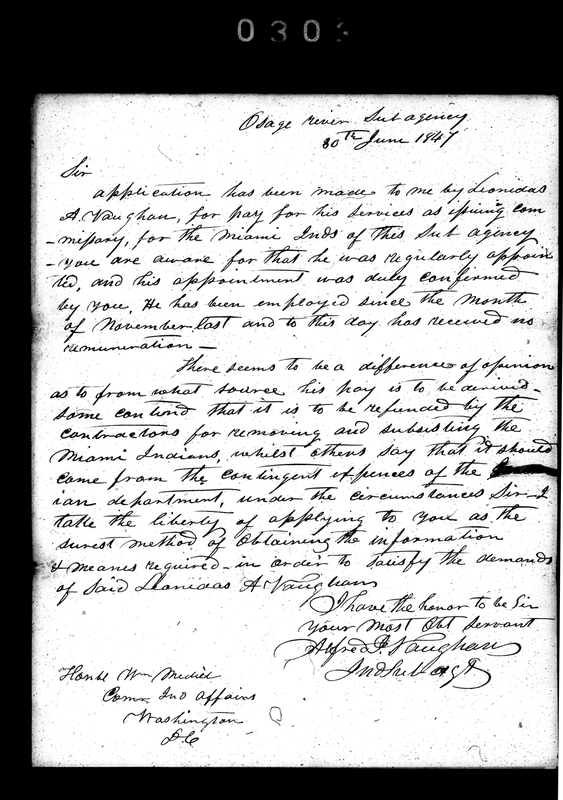 0303
Osage river Sub agency
30th June 1847
Sir
application has been made to me by Leonidas
A. Vaughan, for pay for his services as issuing com
-missary, for the Miami Inds of this Sub agency
- you are aware for that he was regularly appoin
ted, and his appointment was duly confirmed
by you. He has been employed since the month
of November last and to this day has received no
remuneration —
There seems to be a difference of opinion
as to from what source his pay is to be derived -
some contend that it is to be refunded by the
contractors for removing and subsisting the
Miami Indians, whilst others say that it should
come from the contingent expences of the
ian department, under the circumstances Sir - I
take the liberty of applying to you as the
surest method of obtaining the information
& meanes required - in order to satisfy the demands
of said Leonidas A Vaughan
I have the honor to be Sir
your most Obt Servant
Alfred J. Vaughan
Ind Sub agt
Honbl Wm Medill
Comr Ind affairs
Washington
D.C